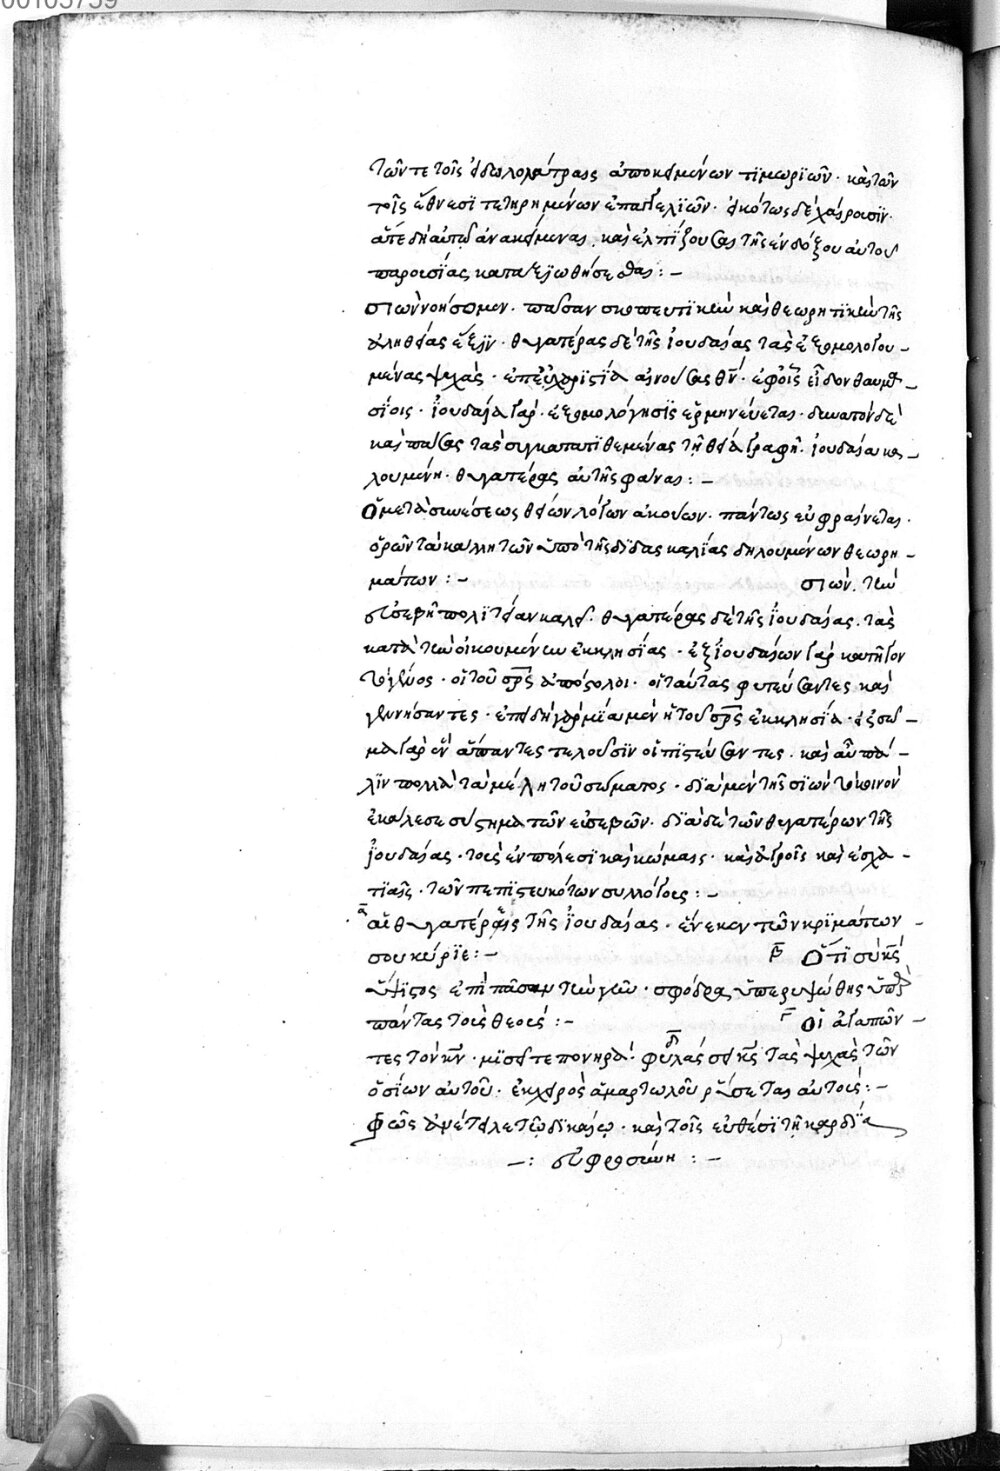 00105759
τῶν τε τοῖς εἰδωλολάτραις ἀποκειμένων τιμωριῶν· καὶ τῶν
τοῖς ἔθνεσι τετηρημένων ἐπαγγελιῶν· εἰκότως δὲ χαίρουσιν·
ἅτε δὴ αὐτῷ ἀνακείμεναι, καὶ ἐλπίζουσαι τῆς ἐνδόξου αὐτοῦ
παρουσίας καταξιωθήσεσθαι :-
σιὼν νοήσομεν· πᾶσαν σκοπευτικὴν καὶ θεωρητικὴν τῆς
ἀληθείας ἕξιν· θυγατέρας δὲ τῆς ἰουδαίας τὰς ἐξομολογου-
μένας ψυχὰς· ἐπ' εὐχαριστία αἰνούσας θν· ἐφ' οἷς εἶδον θαυμα-
σίοις· ἰουδαία γὰρ· ἐξομολόγησις ἑρμηνεύεται· δυνατὸν δὲ
καὶ πάσας τὰς συγκατατιθεμένας τῇ θεία γραφῇ· ἰουδαία κα-
λουμένη· θυγατέρας αὐτῆς φάναι :-
Ὁ μετὰ συνέσεως θείων λόγων ἀκούων· πάντως εὐφραίνεται·
ὁρῶν τὰ κάλλη τῶν ὑπὸ τῆς διδασκαλίας δηλουμένων θεωρη-
μάτων :- σιὼν. τὴν
εὐσεβῆ πολιτείαν καλεῖ· θυγατέρας δὲ τῆς ἰουδαίας. τὰς
κατὰ τὴν οἰκουμένην ἐκκλησίας· ἐξ ἰουδαίων γὰρ κατῆγον
τὸ γένος· οἱ τοῦ σρς ἀπόστολοι· οἱ ταύτας φυτεύσαντες καὶ
γεννήσαντες· ἐπειδὴ γὰρ μία μὲν ἡ τοῦ σρς ἐκκλησία· ἓν σῶ-
μα γὰρ ἓν ἅπαντες τελοῦσιν οἱ πιστεύσαντες· καὶ αὖ πά-
λιν πολλὰ τὰ μέλη τοῦ σώματος· διὰ μὲν τῆς σιὼν τὸ κοινὸν
ἐκάλεσε σύστημα τῶν εὐσεβῶν· διὰ δὲ τῶν θυγατέρων τῆς
ἰουδαίας· τοὺς ἐν πόλεσι καὶ κώμαις· καὶ ἀγροῖς καὶ ἐσχα-
τιαῖς· τῶν πεπιστευκότων συλλόγους :-
α αἱ θυγατέρες τῆς ἰουδαίας· ἕνεκεν τῶν κριμάτων
σου κύριε :- β Ὅτι σὺ κς
ὕψιστος ἐπὶ πᾶσαν τὴν γῆν· σφόδρα ὑπερυψώθης ὑπὲρ
πάντας τοὺς θεούς :- γ Οἱ ἀγαπῶν-
τες τὸν κν· μισεῖτε πονηρά· δ φυλάσσει κς τὰς ψυχὰς τῶν
ὁσίων αὐτοῦ· ἐκ χειρὸς ἁμαρτωλοῦ ῥύσεται αὐτούς :-
φῶς ἀνέτειλε τῷ δικαίῳ· καὶ τοῖς εὐθέσι τῇ καρδία
-: εὐφροσύνη :-